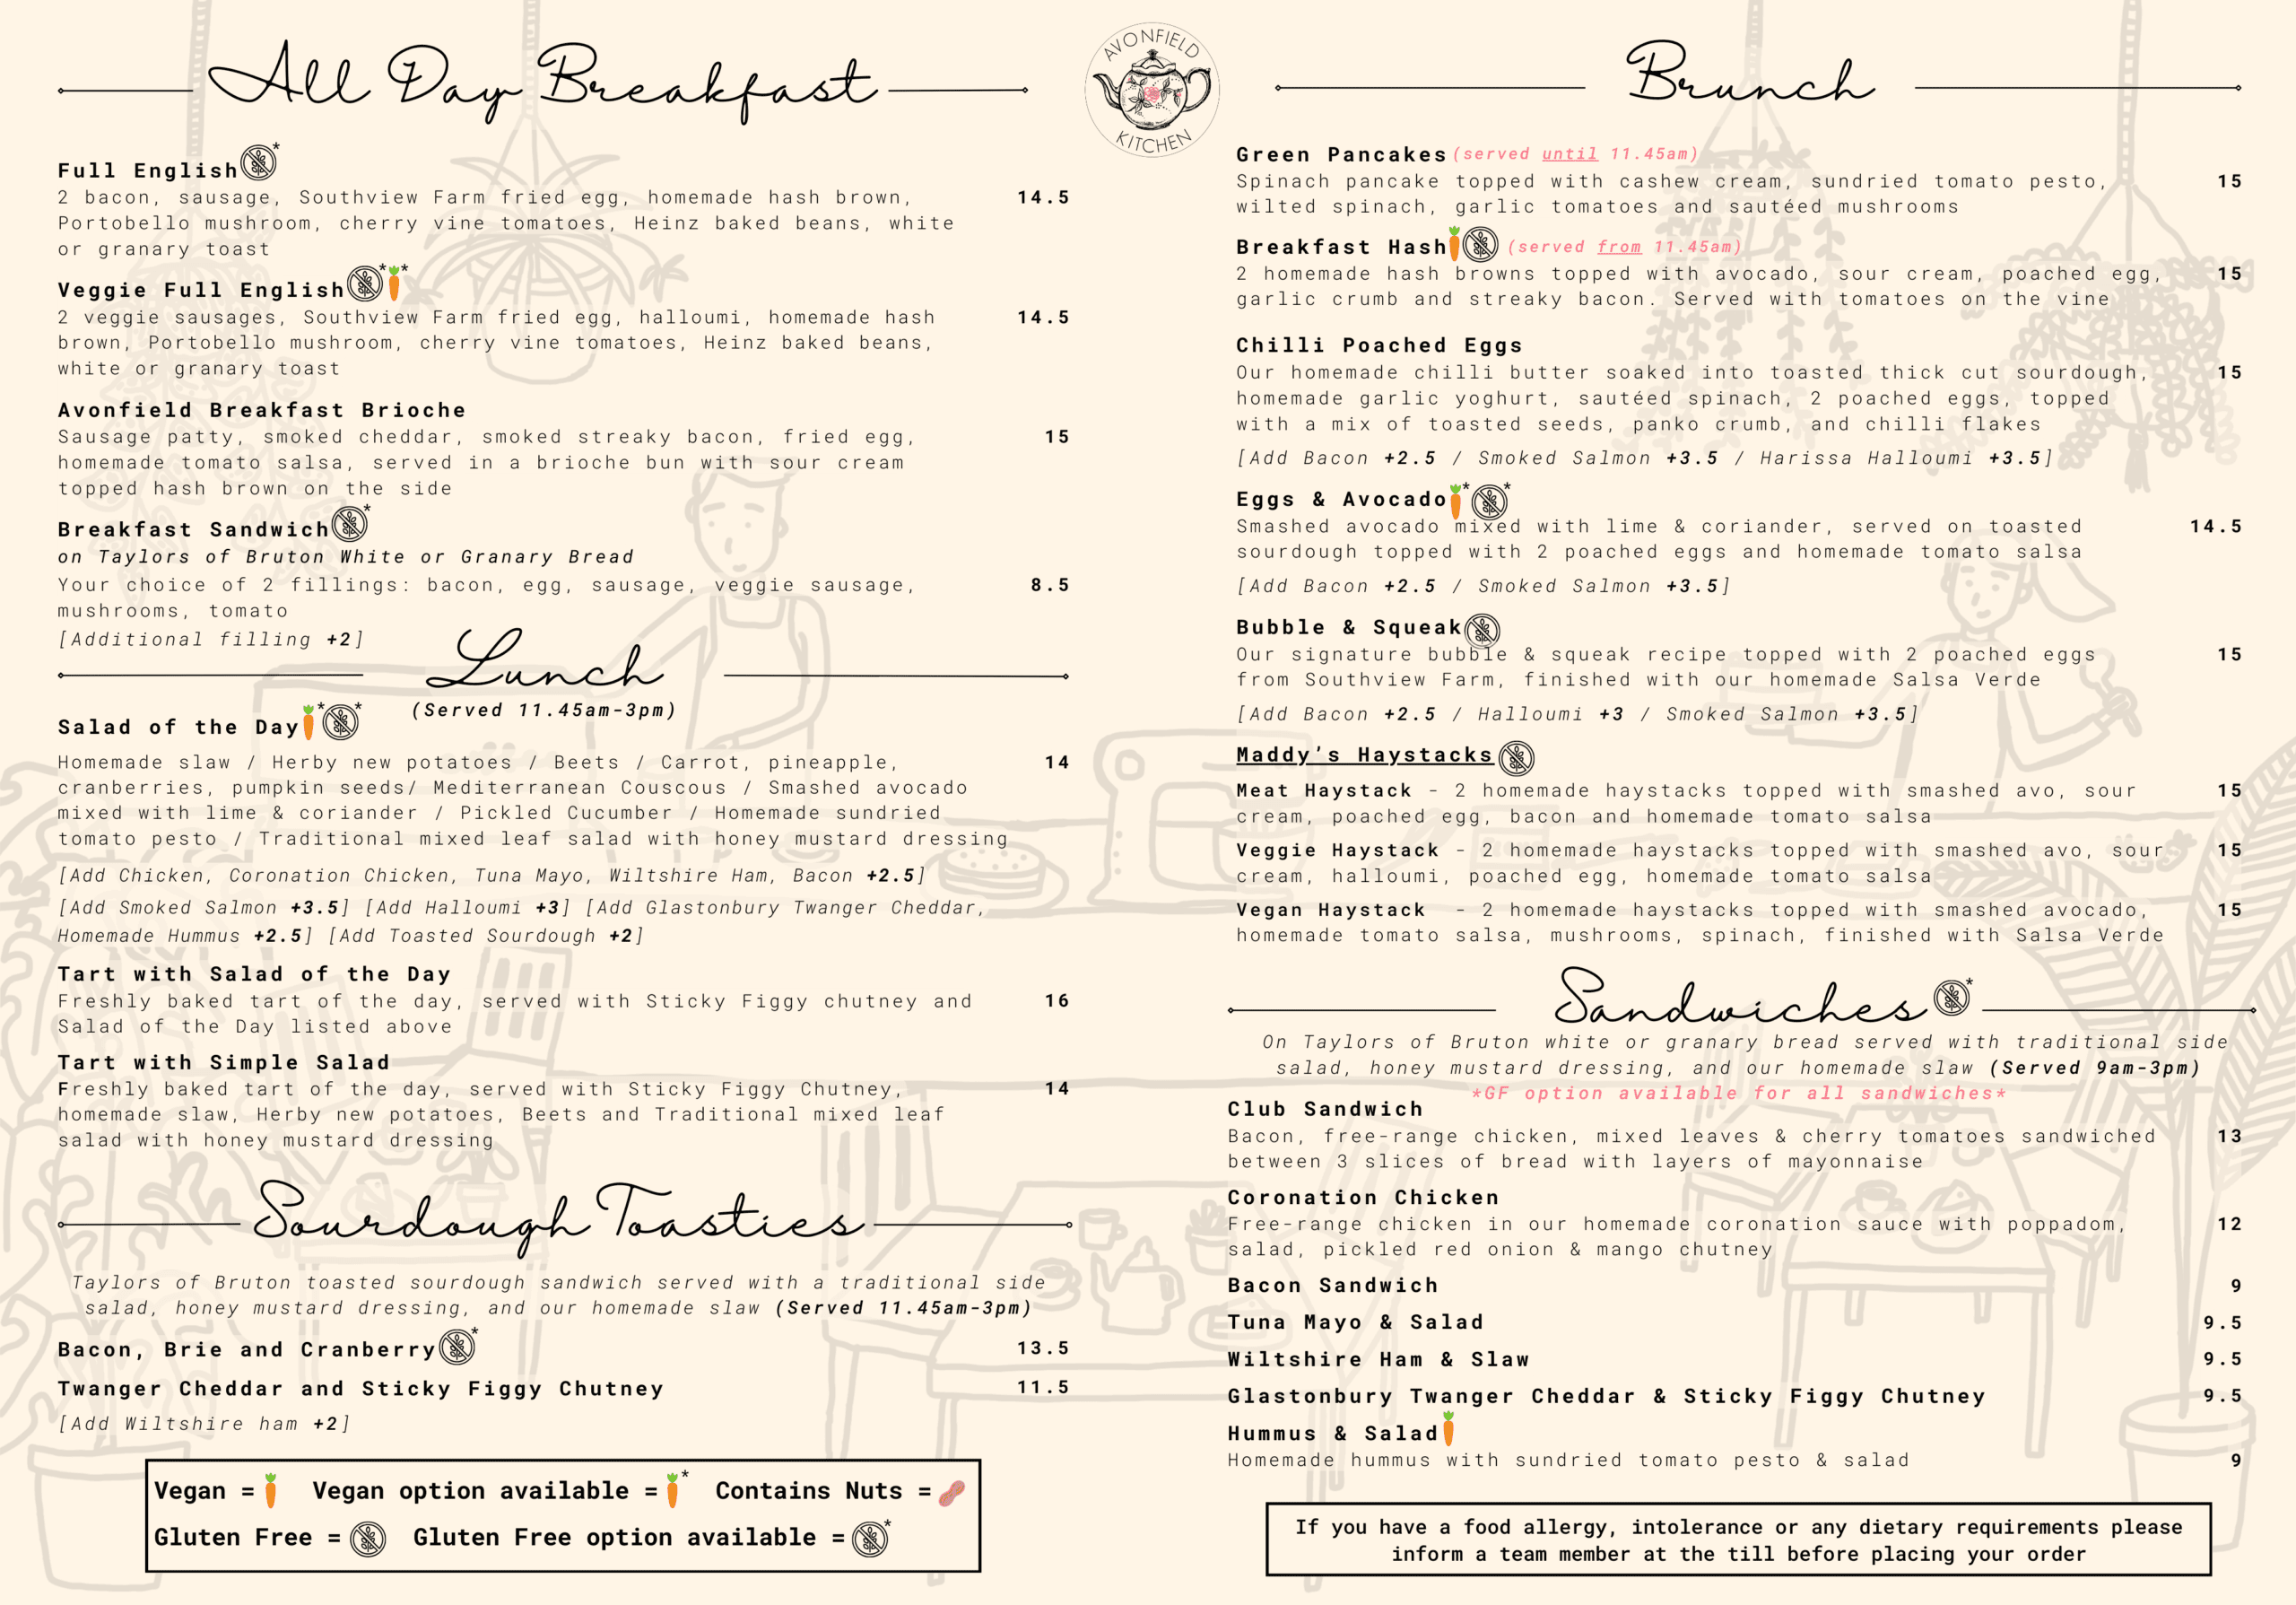 All Day Breakfast
Full English*
2 bacon, sausage, Southview Farm fried egg, homemade hash brown, 14.5
Portobello mushroom, cherry vine tomatoes, Heinz baked beans, white
or granary toast
Veggie Full English**
2 veggie sausages, Southview Farm fried egg, halloumi, homemade hash 14.5
brown, Portobello mushroom, cherry vine tomatoes, Heinz baked beans,
white or granary toast
Avonfield Breakfast Brioche
Sausage patty, smoked cheddar, smoked streaky bacon, fried egg, 15
homemade tomato salsa, served in a brioche bun with sour cream
topped hash brown on the side
Breakfast Sandwich*
on Taylors of Bruton White or Granary Bread
Your choice of 2 fillings: bacon, egg, sausage, veggie sausage, 8.5
mushrooms, tomato
[Additional filling +2]
Lunch
(Served 11.45am-3pm)
Salad of the Day**
Homemade slaw / Herby new potatoes / Beets / Carrot, pineapple, 14
cranberries, pumpkin seeds/ Mediterranean Couscous / Smashed avocado
mixed with lime & coriander / Pickled Cucumber / Homemade sundried
tomato pesto / Traditional mixed leaf salad with honey mustard dressing
[Add Chicken, Coronation Chicken, Tuna Mayo, Wiltshire Ham, Bacon +2.5]
[Add Smoked Salmon +3.5] [Add Halloumi +3] [Add Glastonbury Twanger Cheddar,
Homemade Hummus +2.5] [Add Toasted Sourdough +2]
Tart with Salad of the Day
Freshly baked tart of the day, served with Sticky Figgy chutney and 16
Salad of the Day listed above
Tart with Simple Salad
Freshly baked tart of the day, served with Sticky Figgy Chutney, 14
homemade slaw, Herby new potatoes, Beets and Traditional mixed leaf
salad with honey mustard dressing
Sourdough Toasties
Taylors of Bruton toasted sourdough sandwich served with a traditional side
salad, honey mustard dressing, and our homemade slaw (Served 11.45am-3pm)
Bacon, Brie and Cranberry* 13.5
Twanger Cheddar and Sticky Figgy Chutney 11.5
[Add Wiltshire ham +2]
Vegan = Vegan option available =* Contains Nuts =
Gluten Free = Gluten Free option available =*
AVONFIELD
KITCHEN
Brunch
Green Pancakes (served until 11.45am)
Spinach pancake topped with cashew cream, sundried tomato pesto, 15
wilted spinach, garlic tomatoes and sautéed mushrooms
Breakfast Hash (served from 11.45am)
2 homemade hash browns topped with avocado, sour cream, poached egg, 15
garlic crumb and streaky bacon. Served with tomatoes on the vine
Chilli Poached Eggs
Our homemade chilli butter soaked into toasted thick cut sourdough, 15
homemade garlic yoghurt, sautéed spinach, 2 poached eggs, topped
with a mix of toasted seeds, panko crumb, and chilli flakes
[Add Bacon +2.5 / Smoked Salmon +3.5 / Harissa Halloumi +3.5]
Eggs & Avocado**
Smashed avocado mixed with lime & coriander, served on toasted 14.5
sourdough topped with 2 poached eggs and homemade tomato salsa
[Add Bacon +2.5 / Smoked Salmon +3.5]
Bubble & Squeak
Our signature bubble & squeak recipe topped with 2 poached eggs 15
from Southview Farm, finished with our homemade Salsa Verde
[Add Bacon +2.5 / Halloumi +3 / Smoked Salmon +3.5]
Maddy's Haystacks
Meat Haystack - 2 homemade haystacks topped with smashed avo, sour 15
cream, poached egg, bacon and homemade tomato salsa
Veggie Haystack - 2 homemade haystacks topped with smashed avo, sour 15
cream, halloumi, poached egg, homemade tomato salsa
Vegan Haystack - 2 homemade haystacks topped with smashed avocado, 15
homemade tomato salsa, mushrooms, spinach, finished with Salsa Verde
Sandwiches*
On Taylors of Bruton white or granary bread served with traditional side
salad, honey mustard dressing, and our homemade slaw (Served 9am-3pm)
*GF option available for all sandwiches*
Club Sandwich
Bacon, free-range chicken, mixed leaves & cherry tomatoes sandwiched 13
between 3 slices of bread with layers of mayonnaise
Coronation Chicken
Free-range chicken in our homemade coronation sauce with poppadom, 12
salad, pickled red onion & mango chutney
Bacon Sandwich 9
Tuna Mayo & Salad 9.5
Wiltshire Ham & Slaw 9.5
Glastonbury Twanger Cheddar & Sticky Figgy Chutney 9.5
Hummus & Salad
Homemade hummus with sundried tomato pesto & salad 9
If you have a food allergy, intolerance or any dietary requirements please
inform a team member at the till before placing your order